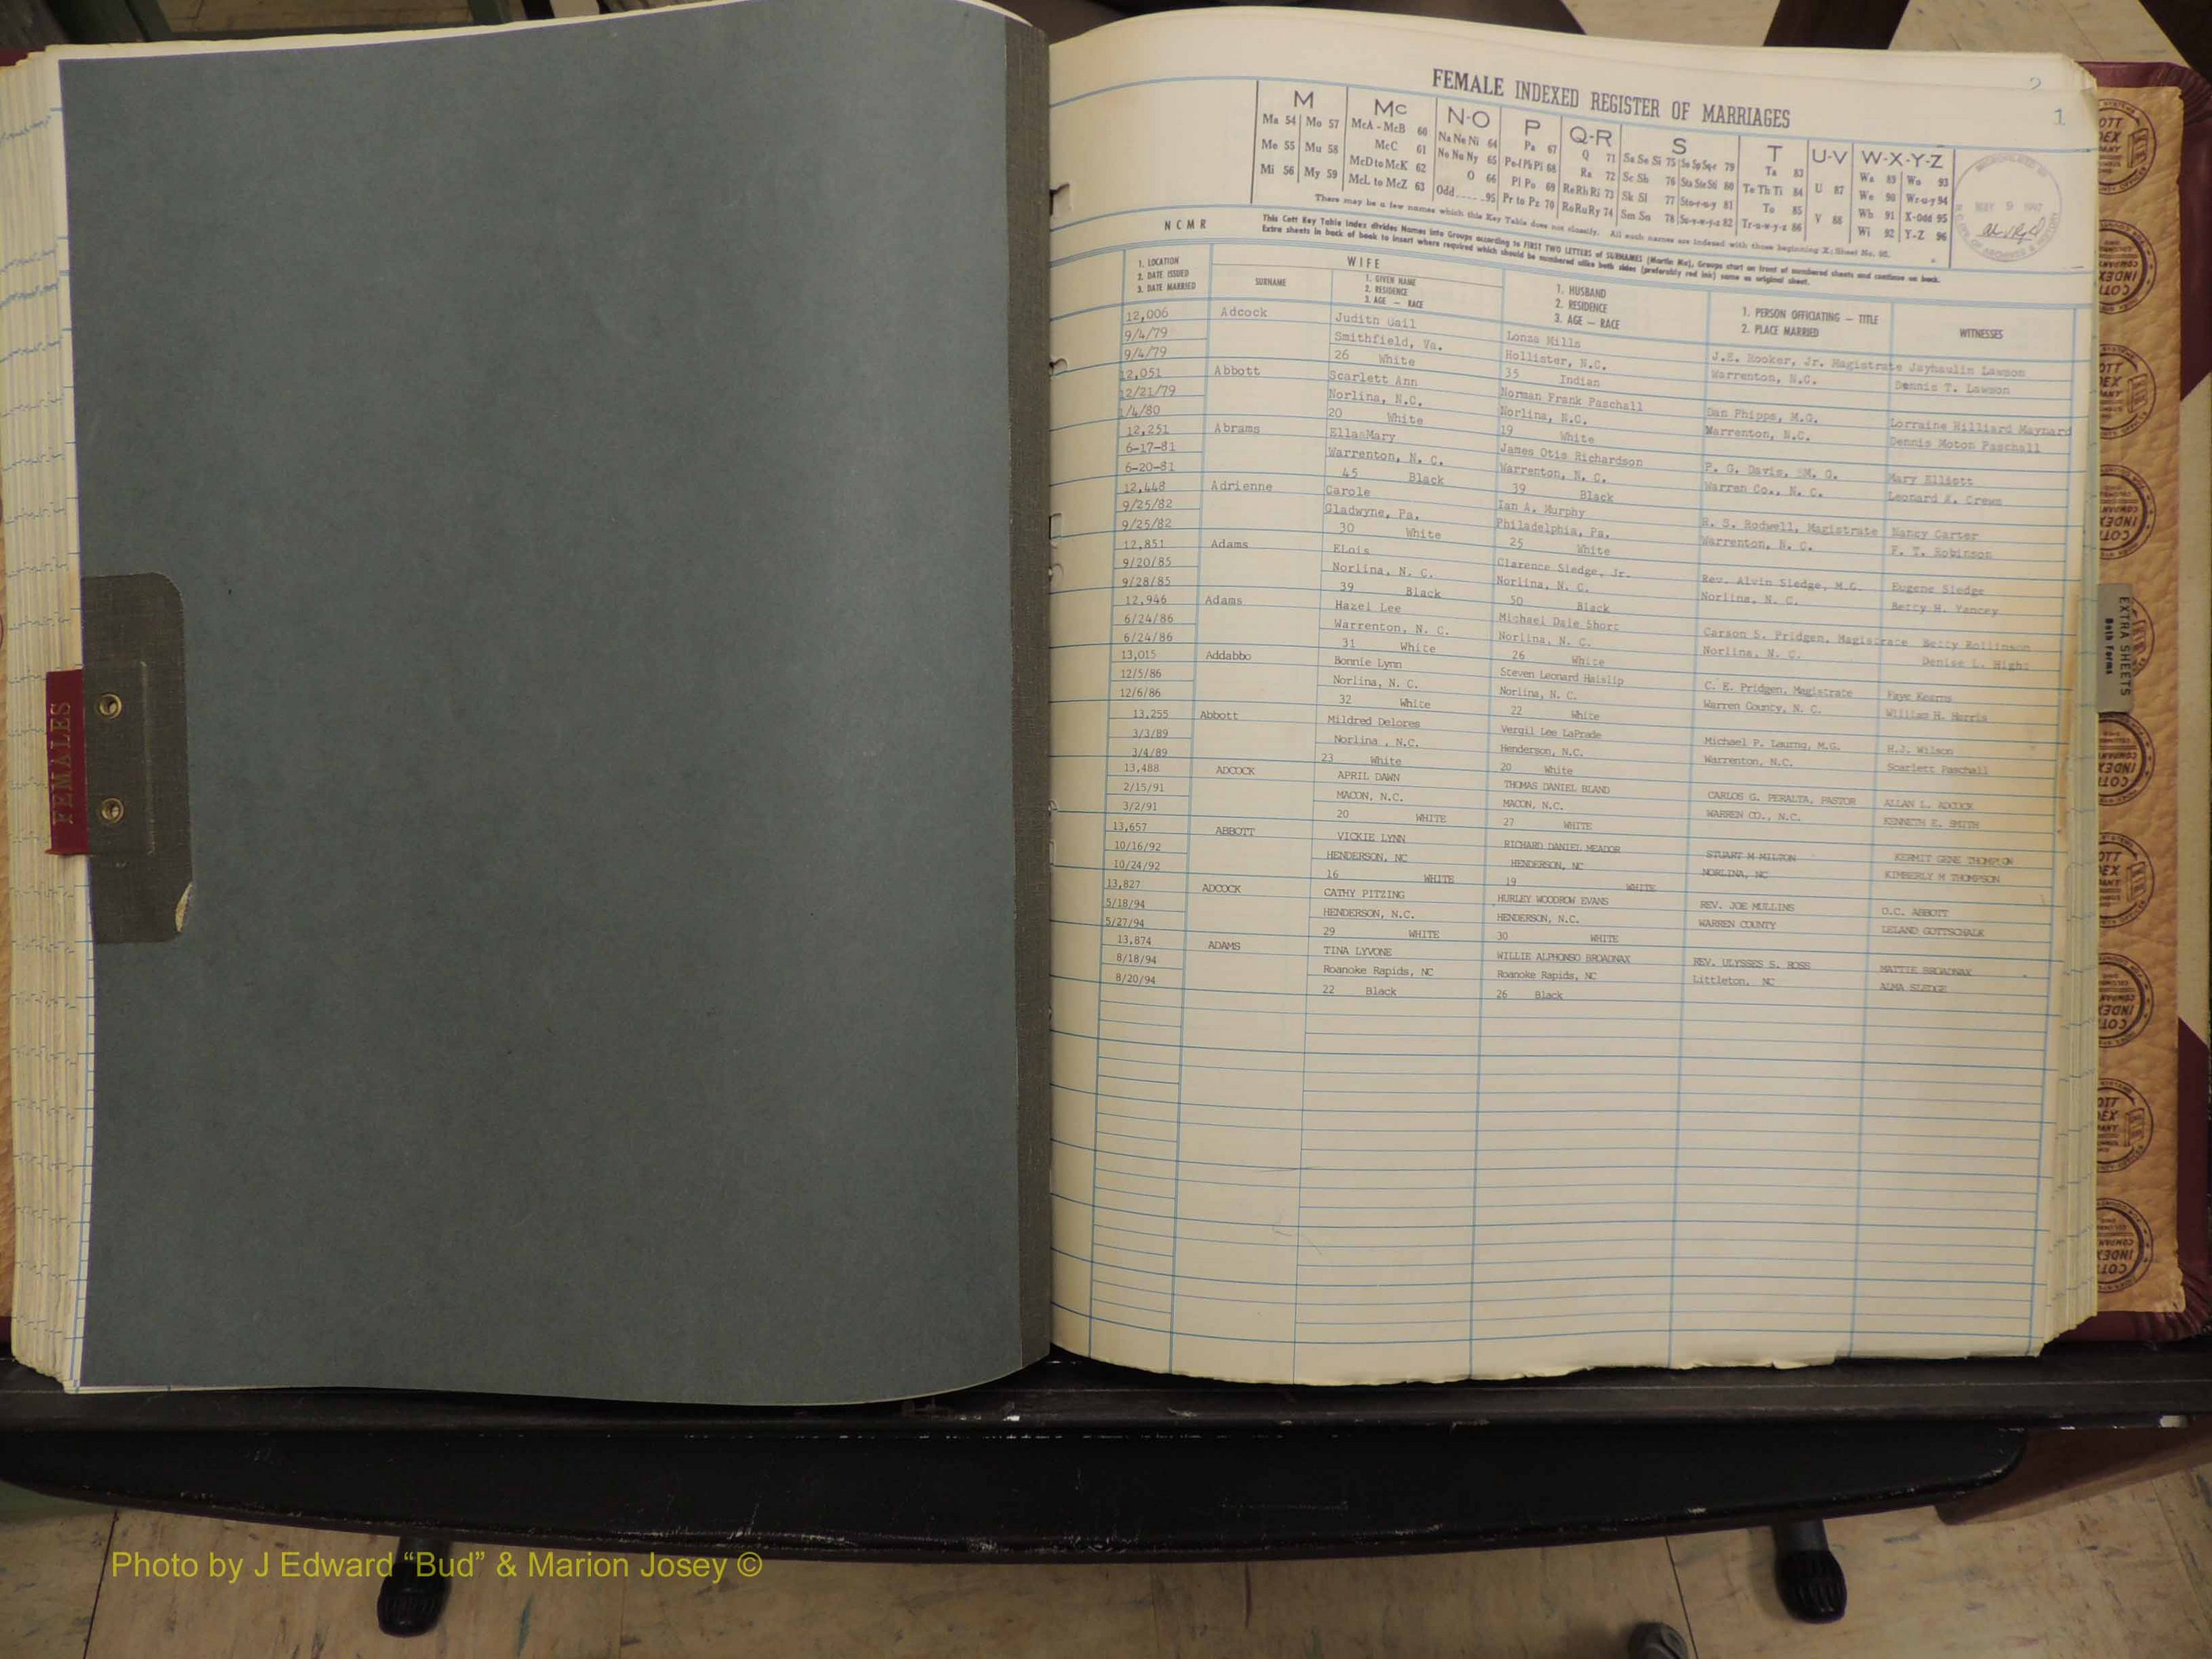 FEMALES
2
1
FEMALE INDEXED REGISTER OF MARRIAGES
M Mc N-O P Q-R S T U-V W-X-Y-Z
Ma 54 Mo 57 McA - McB 60 Na Ne Ni 64 Pa 67 Q 71 Sa Se Si 75 So Sp Sq-r 79 Ta 83 Wa 89 Wo 93
Me 55 Mu 58 McC 61 No Nu Ny 65 Pe-f Ph Pi 68 Ra 72 Sc Sh 76 Sta Ste Sti 80 Te Th Ti 84 U 87 We 90 Wr-u-y 94
Mi 56 My 59 McD to McK 62 O 66 Pl Po 69 Re Rh Ri 73 Sk Sl 77 Sto-r-u-y 81 To 85 V 88 Wh 91 X-Odd 95
McL to McZ 63 Odd 95 Pr to Pz 70 Ro Ru Ry 74 Sm Sn 78 Su-v-w-y-z 82 Tr-u-w-y-z 86 Wi 92 Y-Z 96
There may be a few names which this Key Table does not classify. All such names are indexed with those beginning X; Sheet No. 95.
This Cott Key Table Index divides Names into Groups according to FIRST TWO LETTERS of SURNAMES (Martin Ma), Groups start on front of numbered sheets and continue on back.
Extra sheets in back of book to insert where required which should be numbered alike both sides (preferably red ink) same as original sheet.
N C M R
WIFE
1. LOCATION
2. DATE ISSUED
3. DATE MARRIED
SURNAME
1. GIVEN NAME
2. RESIDENCE
3. AGE — RACE
1. HUSBAND
2. RESIDENCE
3. AGE — RACE
1. PERSON OFFICIATING — TITLE
2. PLACE MARRIED
WITNESSES
12,006 Adcock Judith Gail Lonza Mills J.E. Hooker, Jr. Magistrate Jayhaulin Lawson
9/4/79 Smithfield, Va. Hollister, N.C. Warrenton, N.C. Dennis T. Lawson
9/4/79 26 White 35 Indian
12,051 Abbott Scarlett Ann Norman Frank Paschall Dan Phipps, M.G. Lorraine Hilliard Maynard
12/21/79 Norlina, N.C. Norlina, N.C. Warrenton, N.C. Dennis Moton Paschall
1/4/80 20 White 19 White
12,251 Abrams EllasMary James Otis Richardson P. G. Davis, M. G. Mary Elliott
6-17-81 Warrenton, N. C. Warrenton, N. C. Warren Co., N. C. Leonard K. Crews
6-20-81 45 Black 39 Black
12,448 Adrienne Carole Ian A. Murphy R. S. Rodwell, Magistrate Nancy Carter
9/25/82 Gladwyne, Pa. Philadelphia, Pa. Warrenton, N. C. F. T. Robinson
9/25/82 30 White 25 White
12,851 Adams ELois Clarence Sledge, Jr. Rev. Alvin Sledge, M.G. Eugene Sledge
9/20/85 Norlina, N. C. Norlina, N. C. Norlina, N. C. Betty H. Yancey
9/28/85 39 Black 50 Black
12,946 Adams Hazel Lee Michael Dale Short Carson S. Pridgen, Magistrate Betty Rollinson
6/24/86 Warrenton, N. C. Norlina, N. C. Norlina, N. C. Denise L. Hight
6/24/86 31 White 26 White
13,015 Addabbo Bonnie Lynn Steven Leonard Haislip C. E. Pridgen, Magistrate Faye Kearns
12/5/86 Norlina, N. C. Norlina, N. C. Warren County, N. C. William H. Harris
12/6/86 32 White 22 White
13,255 Abbott Mildred Delores Vergil Lee LaPrade Michael P. M.G. H.J. Wilson
3/3/89 Norlina , N.C. Henderson, N.C. Warrenton, N.C. Scarlett Paschall
3/4/89 23 White 20 White
13,488 ADCOCK APRIL DAWN THOMAS DANIEL BLAND CARLOS G. PERALTA, PASTOR ALLAN L. ADCOCK
2/15/91 MACON, N.C. MACON, N.C. WARREN CO., N.C. KENNETH E. SMITH
3/2/91 20 WHITE 27 WHITE
13,657 ABBOTT VICKIE LYNN RICHARD DANIEL MEADOR STUART M MILTON KERMIT GENE THOMPSON
10/16/92 HENDERSON, NC HENDERSON, NC NORLINA, NC KIMBERLY M THOMPSON
10/24/92 16 WHITE 19 WHITE
13,827 ADCOCK CATHY PITZING HURLEY WOODROW EVANS REV. JOE MULLINS O.C. ABBOTT
5/18/94 HENDERSON, N.C. HENDERSON, N.C. WARREN COUNTY LELAND GOTTSCHALK
5/27/94 29 WHITE 30 WHITE
13,874 ADAMS TINA LYVONE WILLIE ALPHONSO BROADNAX REV. ULYSSES S. ROSS MATTIE BROADNAX
8/18/94 Roanoke Rapids, NC Roanoke Rapids, NC Littleton, NC ALMA SLEDGE
8/20/94 22 Black 26 Black
EXTRA SHEETS
Both Forms
Photo by J Edward “Bud” & Marion Josey ©